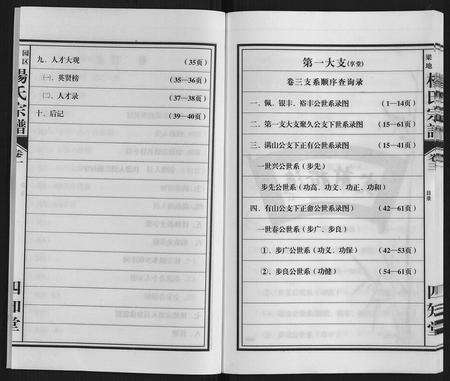 园区
杨氏宗谱
卷一
四知堂
九、人才大观 (35页)
㈠、英贤榜 (35—36页)
㈡、人才录 (37—38页)
十、后记 (39—40页)
第一大支(享堂)
卷三支系顺序查询录
一、佩、银丰、裕丰公世系录图 (1—14页)
二、第一支大支聚久公支下世系录图 (15—61页)
三、满山公支下正有公世系录图 (15—41页)
一世兴公世系(步先)
步先公世系(功高、功文、功正、功和)
四、有山公支下正俞公世系录图) (42—61页)
一世春公世系(步广、步良)
①、步广公世系(功义、功保) (42—53页)
②、步良公世系(功健) (54—61页)
梁地
杨氏宗谱
卷三
目录
四知堂